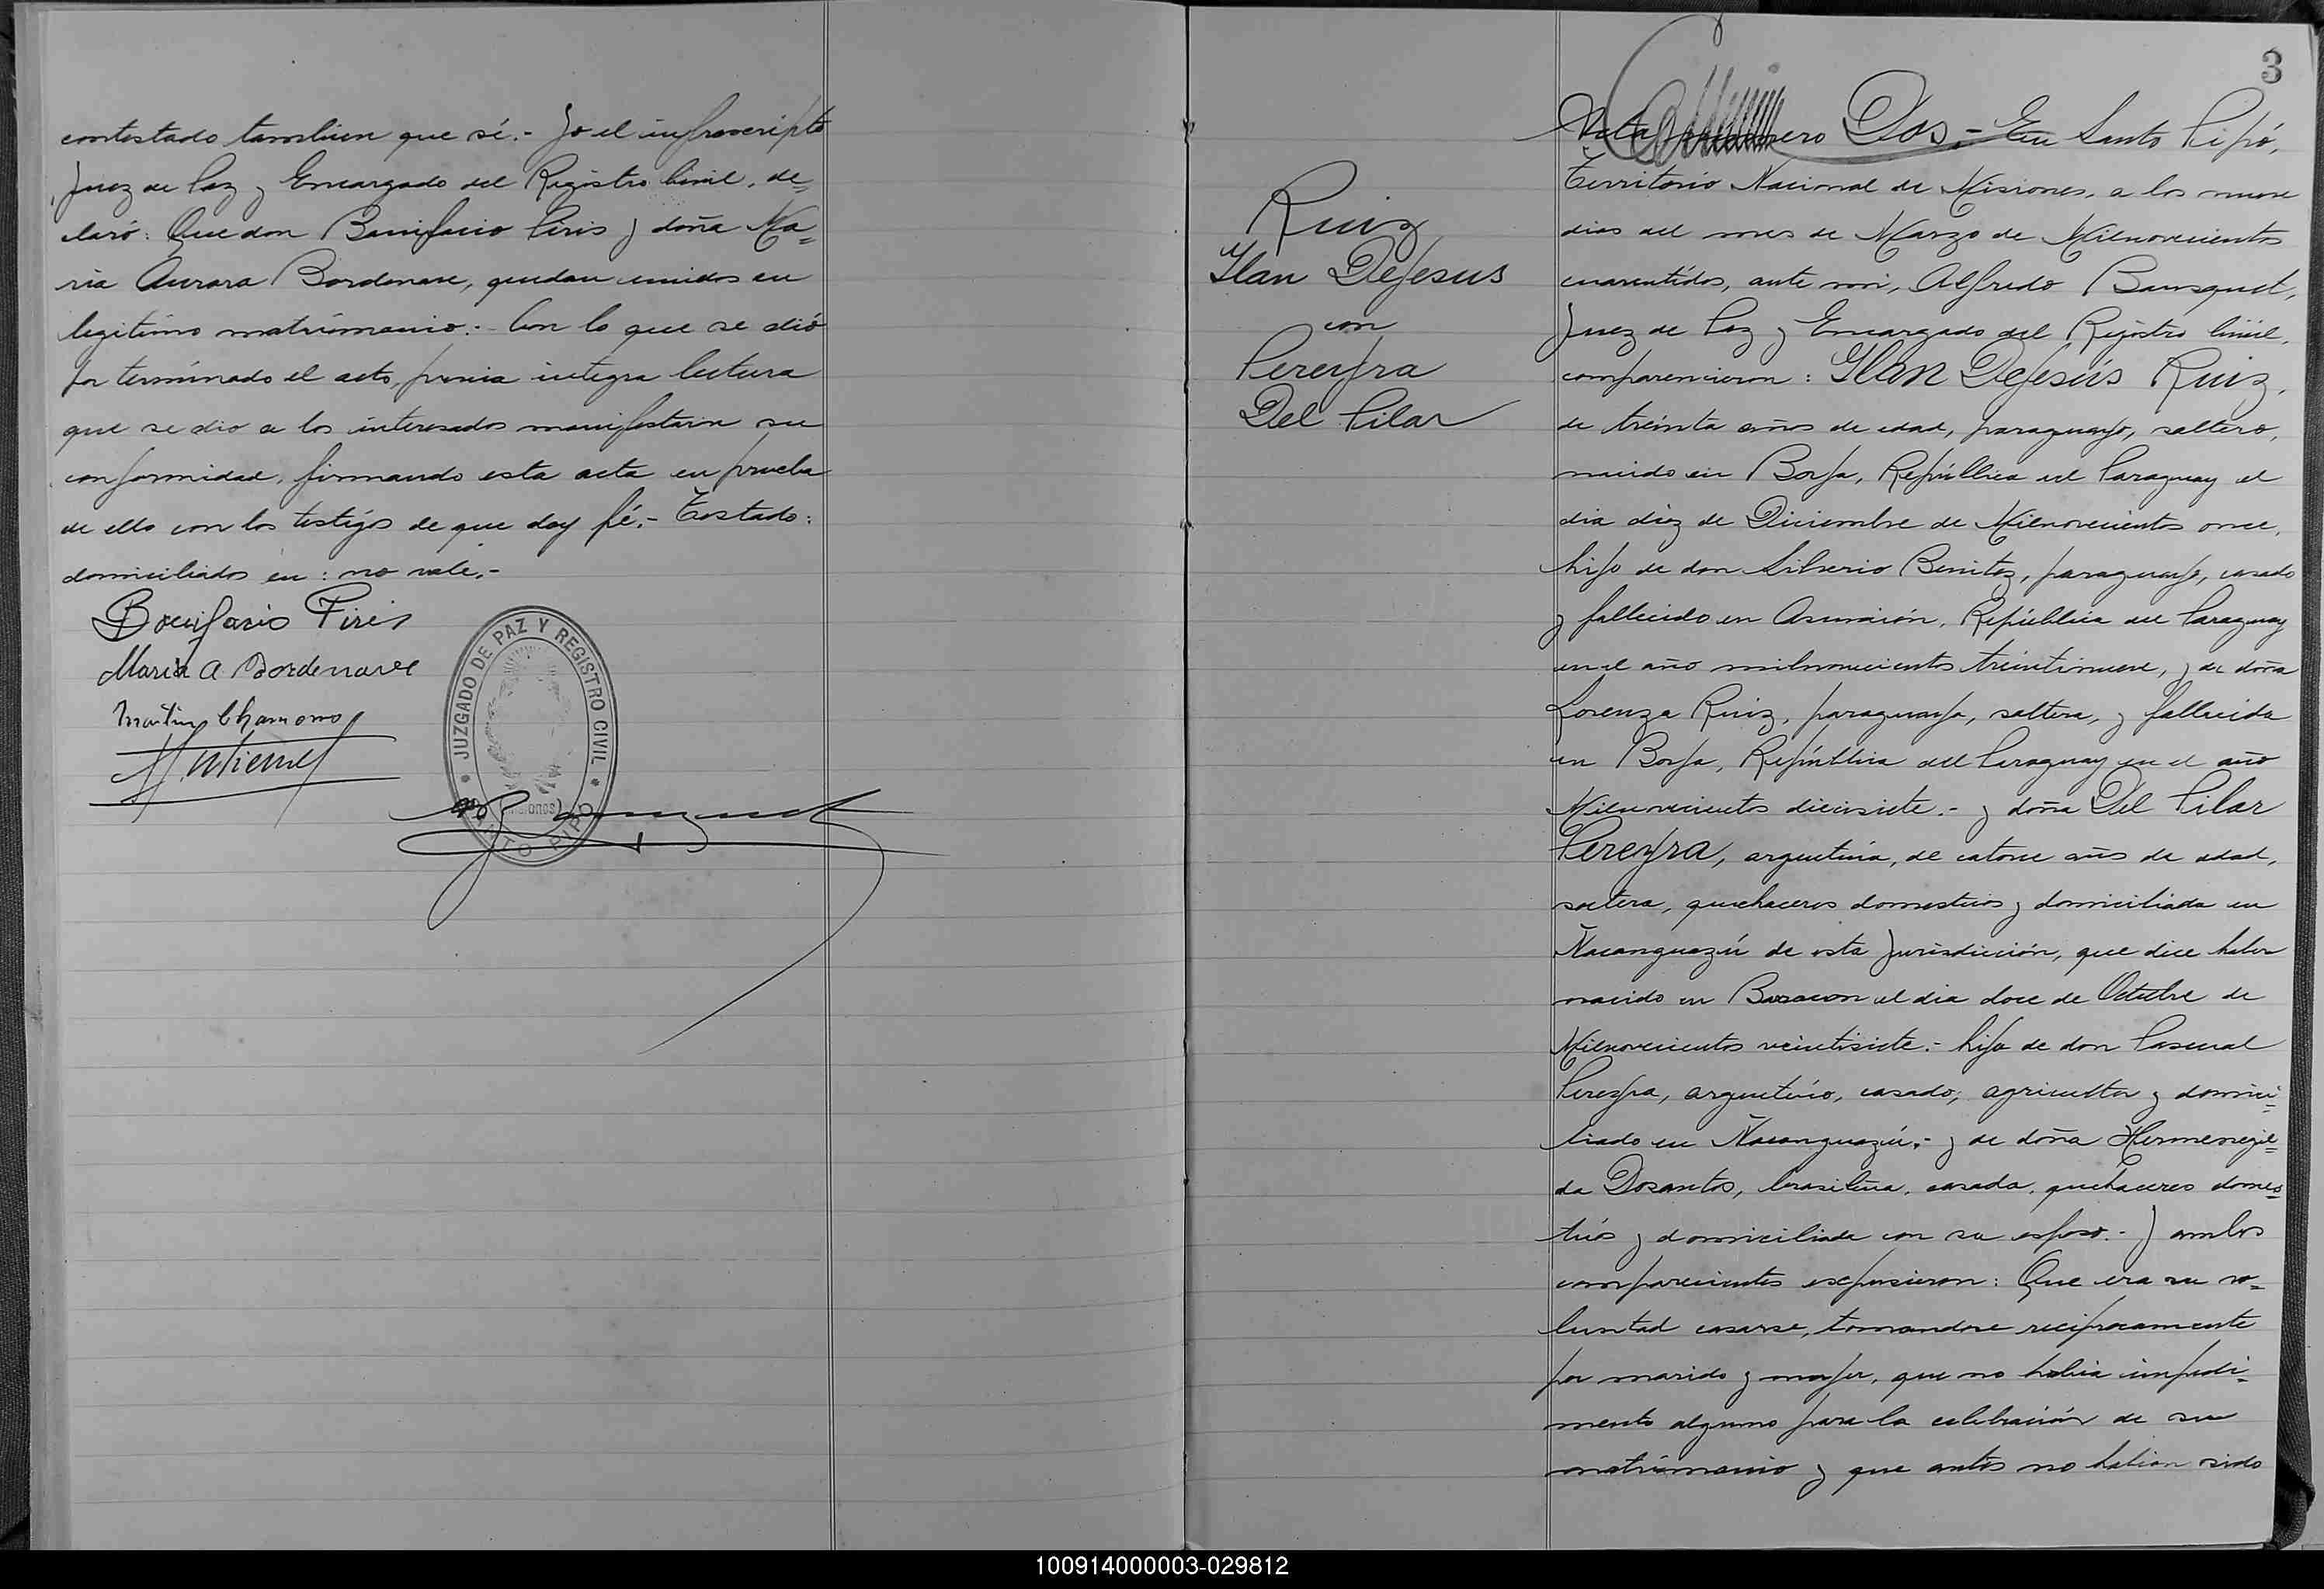 contestado tambien que sí.- Yo el infrascripto
Juez de Paz y Encargado del Registro Civil, de=
claró: Que don Bonifacio Piris y doña Ma=
ria Aurora Bordenave, quedan unidos en
legitimo matrimonio.- Con lo que se dió
por terminado el acto, previa integra lectura
que se dio a los interesados manifestaron su
conformidad, firmando esta acta en prueba
de ello con los testigos de que doy fé.- Testado:
domiciliados en: no vale.-
Bonifacio Piris
Maria A Bordenave
Martin Chamorro
JUZGADO DE PAZ Y REGISTRO CIVIL
SANTO PIPO
Misiones
3
Ruiz
Ilan DeJesus
con
Pereyra
Del Pilar
Acta número Dos.- En Santo Pipó,
Territorio Nacional de Misiones, a los nueve
dias del mes de Marzo de Milnovecientos
cuarentidos, ante mi, Alfredo Bousquet,
Juez de Paz y Encargado del Registro Civil,
comparecieron: Ilan DeJesús Ruiz,
de treinta años de edad, paraguayo, soltero,
nacido en Borja, República del Paraguay el
dia diez de Diciembre de Milnovecientos once,
hijo de don Silverio Benitez, paraguayo, casado
y fallecido en Asunción, República del Paraguay
en el año milnovecientos treintinueve, y de doña
Lorenza Ruiz, paraguaya, soltera, y fallecida
en Borja, República del Paraguay en el año
Milnovecientos diecisiete.- y doña Del Pilar
Pereyra, argentina, de catorce años de edad,
soltera, quehaceres domesticos y domiciliada en
Ñacanguazú de esta Jurisdicción, que dice haber
nacido en el dia doce de Octubre de
Milnovecientos veintisiete.- hija de don Pascual
Pereyra, argentino, casado, agricultor y domici=
liado en Ñacanguazú.- y de doña Hermenegil=
da Dosantos, brasileña, casada, quehaceres domes=
ticos y domiciliada con su esposo.- Y ambos
comparecientes expusieron: Que era su vo=
luntad casarse, tomandose reciprocamente
por marido y mujer, que no habia impedi=
mento alguno para la celebración de su
matrimonio y que antes no habian sido
100914000003-029812